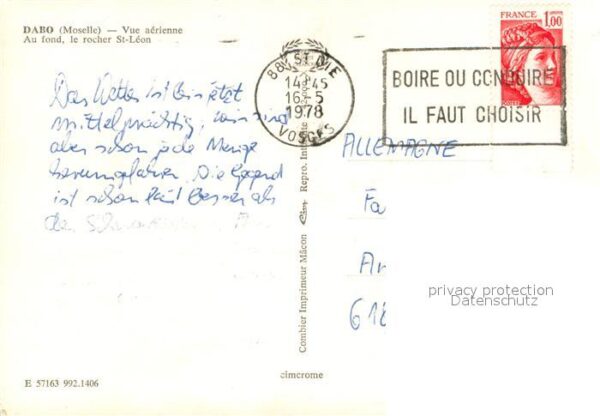 DABO (Moselle) — Vue aérienne
Au fond, le rocher St-Léon
FRANCE
1,00
88 ST DIE
14H45
16-5
1978
VOSGES
BOIRE OU CONDUIRE
IL FAUT CHOISIR
Das Wetter ist bis jetzt
mittelprächtig, wir sind
aber schon jede Menge
herumgefahren. Die Gegend
ist schon fast besser als
der
ALLEMAGNE
Fa
Ar
618
privacy protection
Datenschutz
Combier Imprimeur Mâcon Cim Repro. Int
cimcrome
E 57163 992.1406